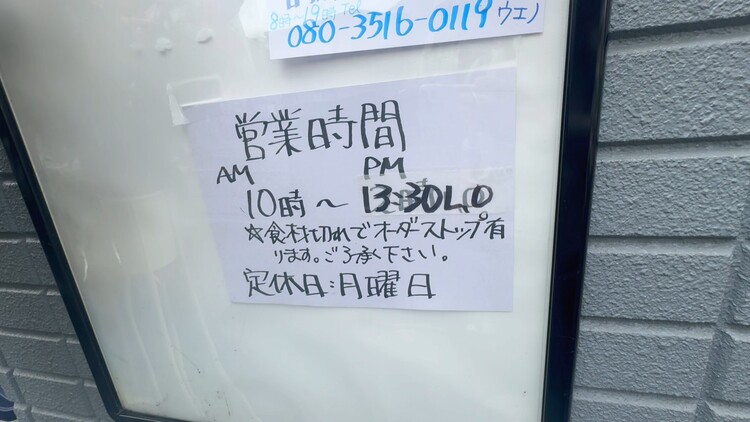 8時～19時 Tel
080-3516-0119 ウエノ
営業時間
AM PM
10時～13:30L.O
☆食材切れでオーダーストップ有
ります。ご了承下さい。
定休日:月曜日